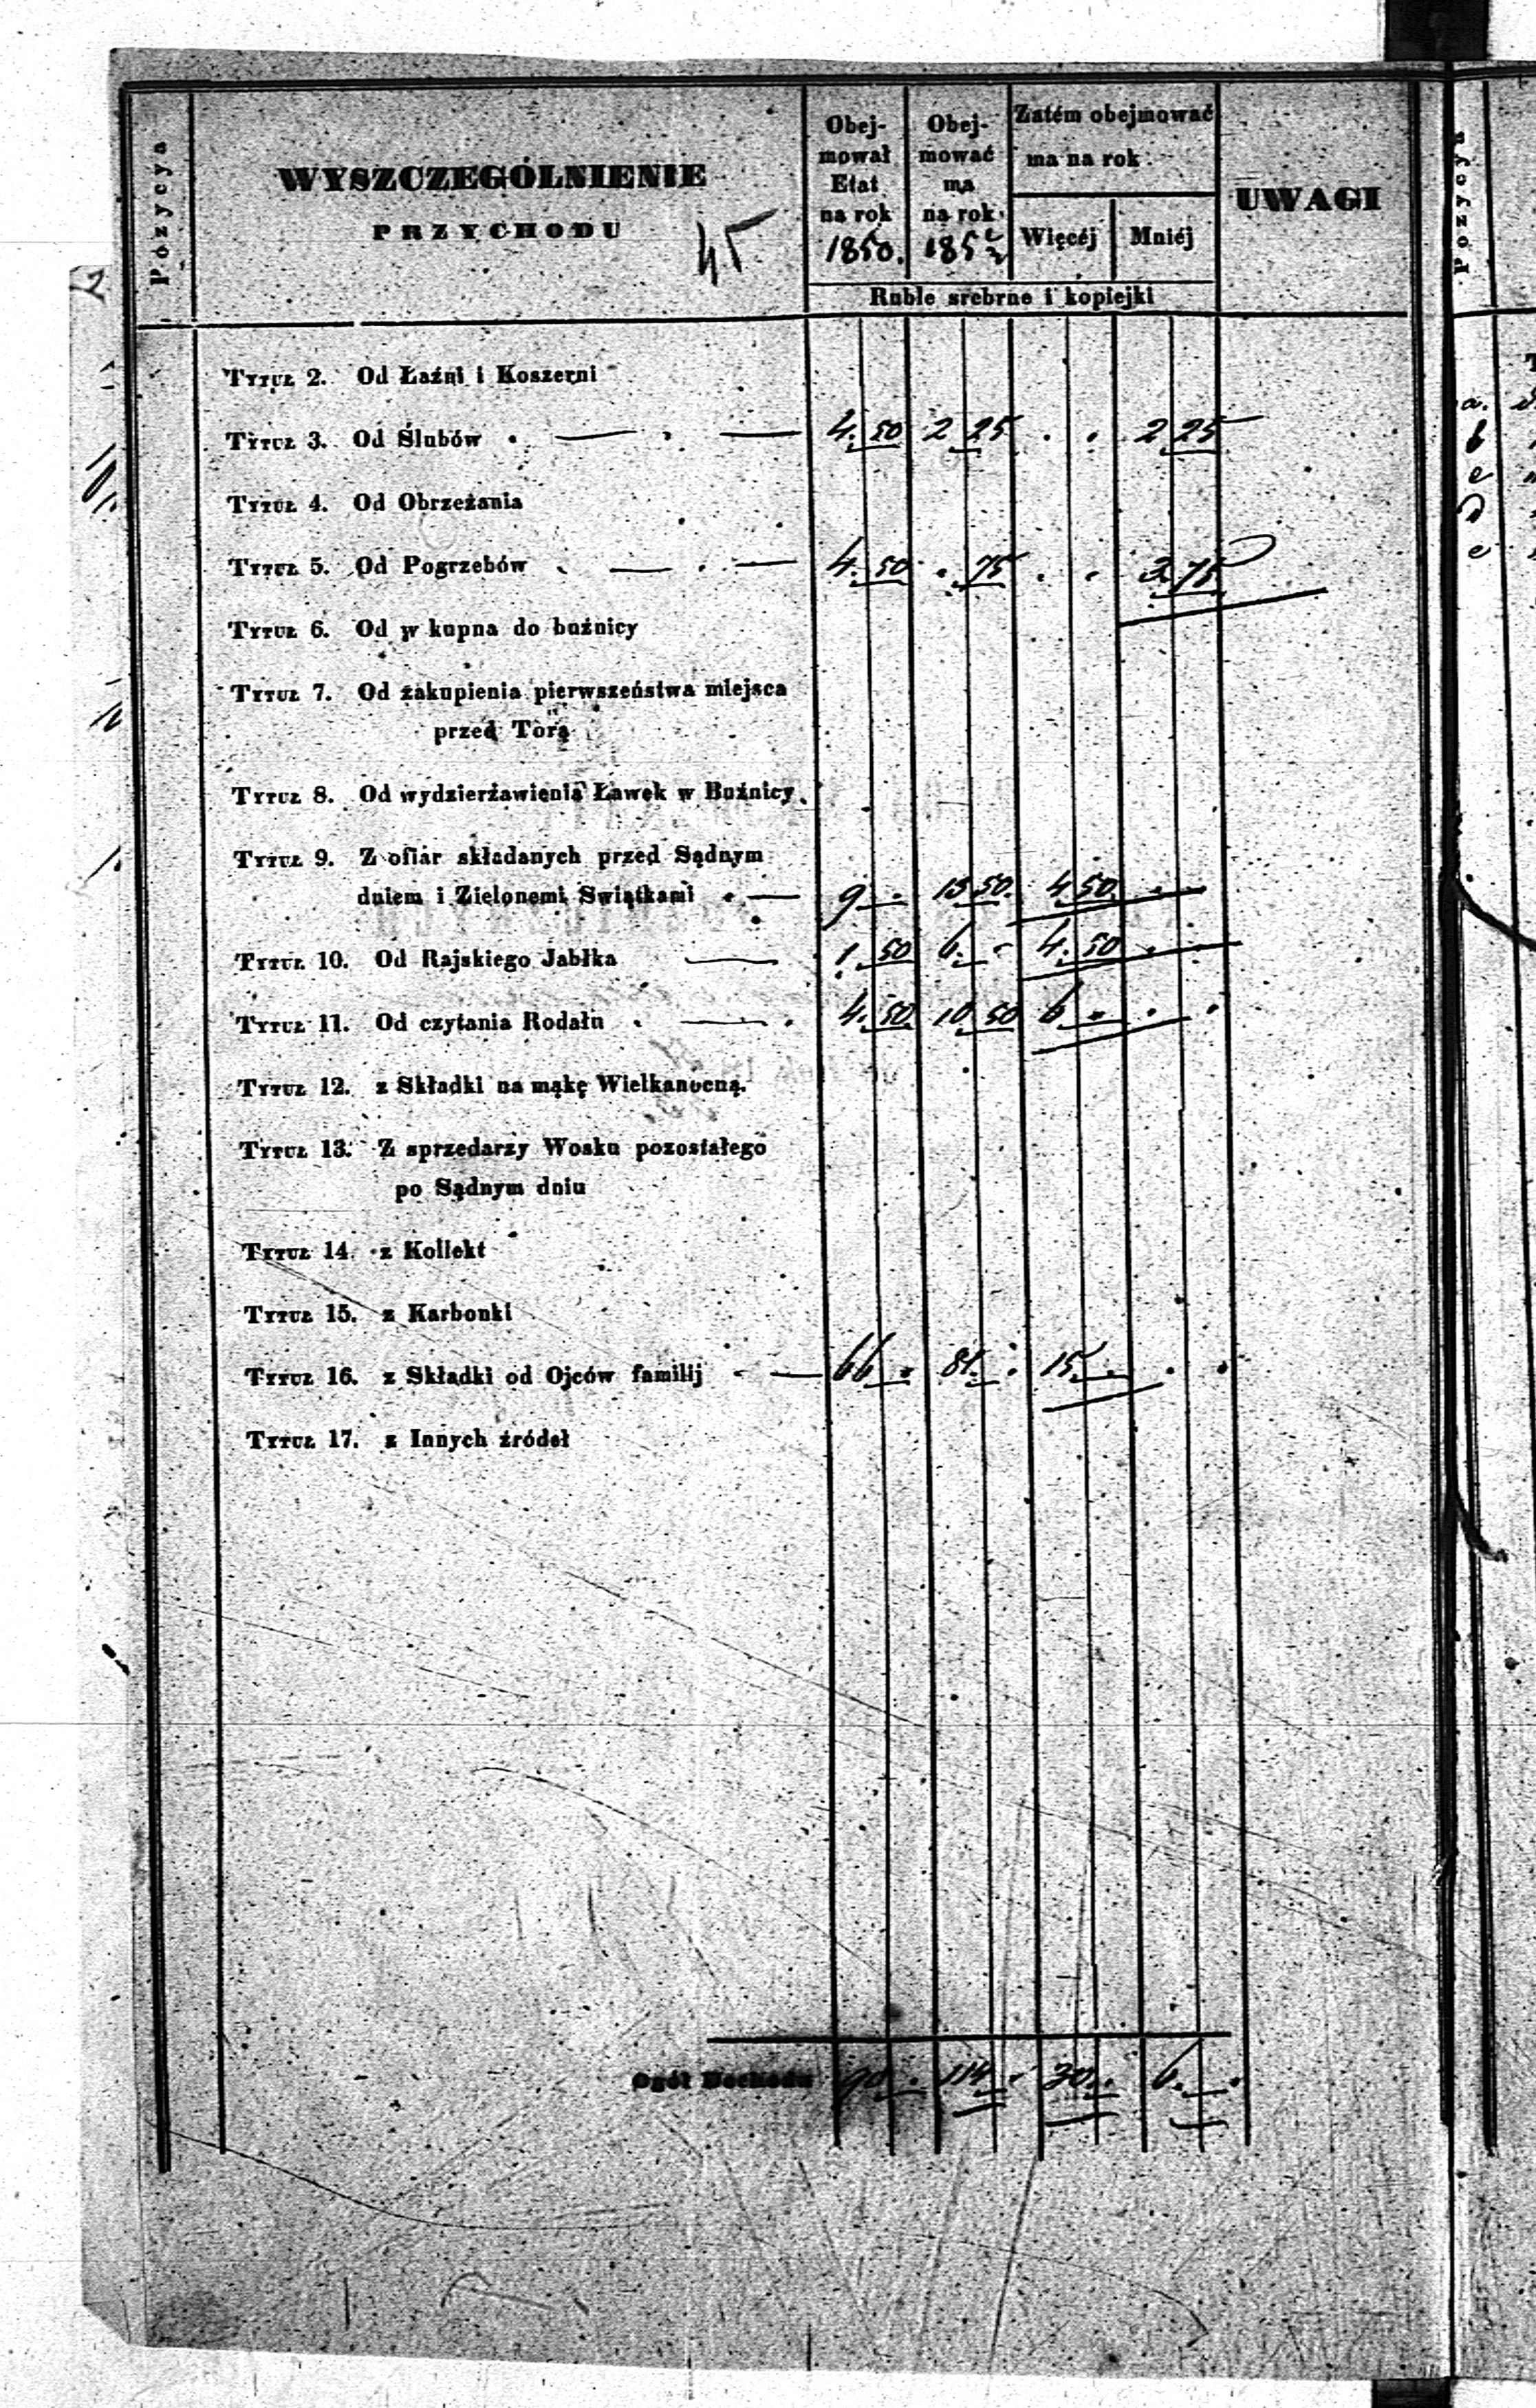 Pozycya
WYSZCZEGÓLNIENIE
PRZYCHODU
45
Obej-
mował
Etat
na rok
1850.
Obej-
mować
ma
na rok
185
Zatém obejmować
ma na rok
Więcéj Mniéj
UWAGI
Ruble srebrne i kopiejki
Tytuł 2. Od Łaźni i Koszerni
Tytuł 3. Od Ślubów 4. 50 2 25 . . 2 25
Tytuł 4. Od Obrzeżania
Tytuł 5. Od Pogrzebów 4. 50 . 75 . . 3 75
Tytuł 6. Od w kupna do bużnicy
Tytuł 7. Od zakupienia pierwszeństwa miejsca
przed Torą
Tytuł 8. Od wydzierżawienia Ławek w Bużnicy
Tytuł 9. Z ofiar składanych przed Sądnym
dniem i Zielonemi Swiątkami 9 - 13 50 4 50
Tytuł 10. Od Rajskiego Jabłka 1. 50 6. - 4. 50
Tytuł 11. Od czytania Rodału 4. 50 10 50 6 -
Tytuł 12. z Składki na mąkę Wielkanocną.
Tytuł 13. Z sprzedarzy Wosku pozostałego
po Sądnym dniu
Tytuł 14. z Kollekt
Tytuł 15. z Karbonki
Tytuł 16. z Składki od Ojców familij 66 . 81 . 15 . . .
Tytuł 17. z Innych źródeł
Ogół Dochodu 90 . 114 . 30 . 6 .
Pozycya
a.
b
c
d
e